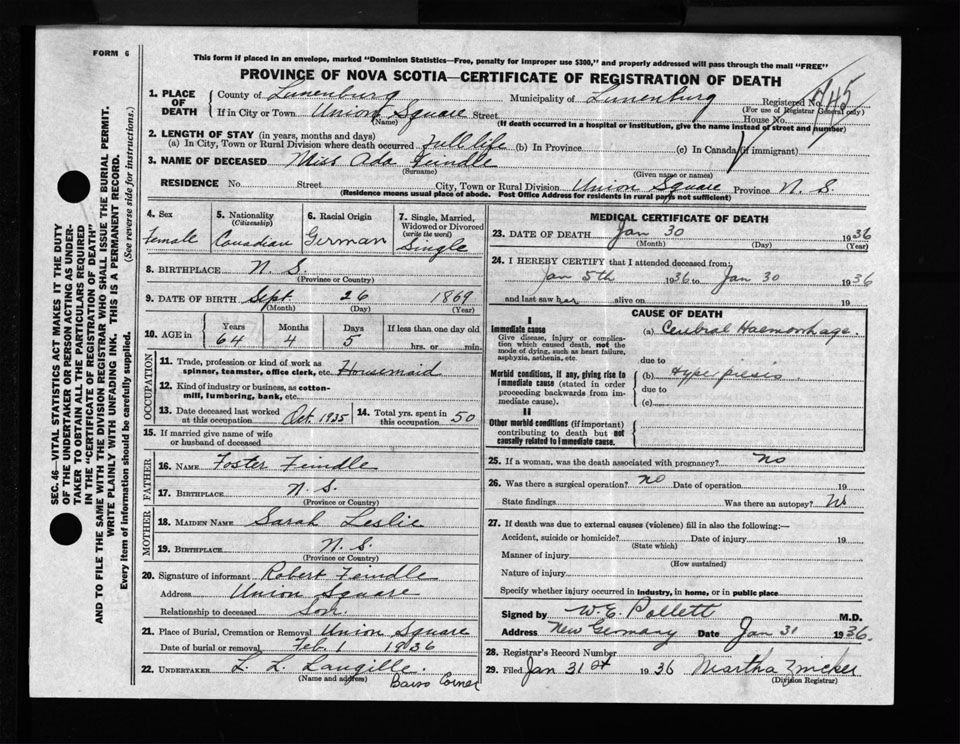 FORM 6
This form if placed in an envelope, marked "Dominion Statistics—Free, penalty for improper use $300," and properly addressed will pass through the mail "FREE"
PROVINCE OF NOVA SCOTIA—CERTIFICATE OF REGISTRATION OF DEATH
1. PLACE OF DEATH County of Lunenburg Municipality of Lunenburg Registered No. 745
(For use of Registrar General only)
If in City or Town Union Square Street House No.
(Name) (If death occurred in a hospital or institution, give the name instead of street and number)
2. LENGTH OF STAY (in years, months and days)
(a) In City, Town or Rural Division where death occurred Full life (b) In Province (c) In Canada (if immigrant)
3. NAME OF DECEASED Miss Ada Feindle
(Surname) (Given name or names)
RESIDENCE No. Street City, Town or Rural Division Union Square Province N. S.
(Residence means usual place of abode. Post Office Address for residents in rural parts not sufficient)
4. Sex Female
5. Nationality (Citizenship) Canadian
6. Racial Origin German
7. Single, Married, Widowed or Divorced (write the word) Single
8. BIRTHPLACE N. S.
(Province or Country)
9. DATE OF BIRTH Sept. 26 1869
(Month) (Day) (Year)
10. AGE in Years 64 Months 4 Days 5 If less than one day old hrs. or min.
OCCUPATION
11. Trade, profession or kind of work as spinner, teamster, office clerk, etc. Housemaid
12. Kind of industry or business, as cotton-mill, lumbering, bank, etc.
13. Date deceased last worked at this occupation Oct. 1935 14. Total yrs. spent in this occupation 50
15. If married give name of wife or husband of deceased
FATHER
16. NAME Foster Feindle
17. BIRTHPLACE N. S.
(Province or Country)
MOTHER
18. MAIDEN NAME Sarah Leslie
19. BIRTHPLACE N. S.
(Province or Country)
20. Signature of informant Robert Feindle
Address Union Square
Relationship to deceased Son.
21. Place of Burial, Cremation or Removal Union Square
Date of burial or removal Feb. 1 1936
22. UNDERTAKER L. L. Langille.
(Name and address) Barss Corner
MEDICAL CERTIFICATE OF DEATH
23. DATE OF DEATH Jan 30 1936
(Month) (Day) (Year)
24. I HEREBY CERTIFY that I attended deceased from:
Jan 5th 1936 to Jan 30 1936
and last saw her alive on 19
CAUSE OF DEATH
I
Immediate cause (a) Cerebral Haemorrhage.
Give disease, injury or complication which caused death, not the mode of dying, such as heart failure, asphyxia, asthenia, etc.
due to
Morbid conditions, if any, giving rise to immediate cause (stated in order proceeding backwards from immediate cause).
(b) Hyperpiesis
due to
(c)
II
Other morbid conditions (if important) contributing to death but not causally related to immediate cause.
25. If a woman, was the death associated with pregnancy? No
26. Was there a surgical operation? No Date of operation 19
State findings Was there an autopsy? No
27. If death was due to external causes (violence) fill in also the following:—
Accident, suicide or homicide? Date of injury 19
(State which)
Manner of injury
(How sustained)
Nature of injury
Specify whether injury occurred in industry, in home, or in public place
Signed by W. E. Pollett M.D.
Address New Germany Date Jan 31 1936.
28. Registrar's Record Number
29. Filed Jan 31st 1936 Martha Zwicker
(Division Registrar)
SEC. 46—VITAL STATISTICS ACT MAKES IT THE DUTY
OF THE UNDERTAKER OR PERSON ACTING AS UNDER-
TAKER TO OBTAIN ALL THE PARTICULARS REQUIRED
IN THE "CERTIFICATE OF REGISTRATION OF DEATH"
AND TO FILE THE SAME WITH THE DIVISION REGISTRAR WHO SHALL ISSUE THE BURIAL PERMIT.
WRITE PLAINLY WITH UNFADING INK. THIS IS A PERMANENT RECORD.
Every item of information should be carefully supplied. (See reverse side for instructions.)